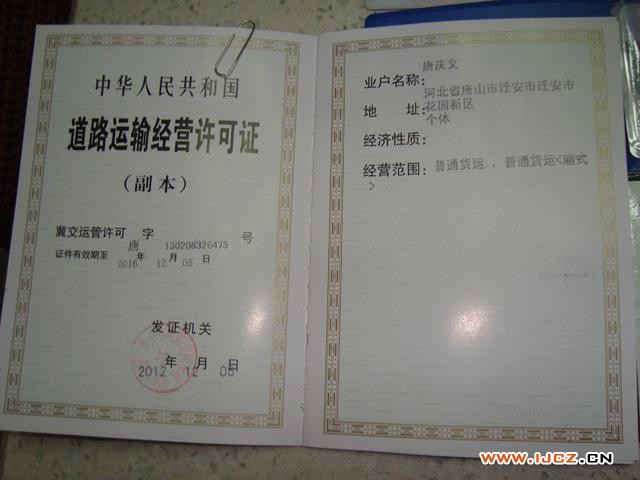 中华人民共和国
道路运输经营许可证
（副本）
冀交运管许可 唐 字 130208326475 号
证件有效期至 2016 年 12 月 05 日
发证机关
2012 年 12 月 06 日
业户名称：唐庆文
地 址：河北省唐山市迁安市迁安市
花园新区
经济性质：个体
经营范围：普通货运.，普通货运<厢式
>
www.IJCZ.CN